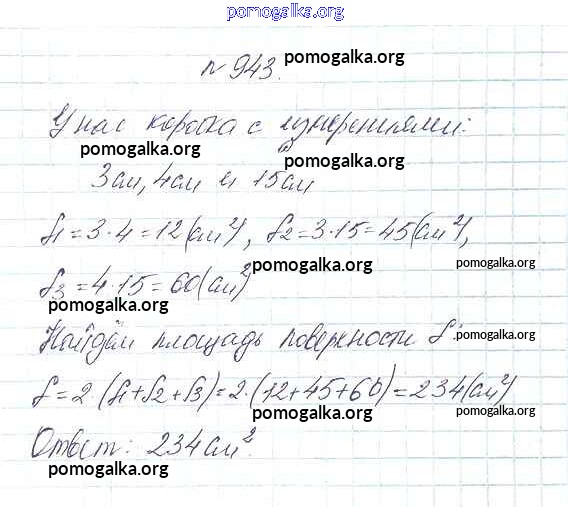 pomogalka.org
n 943. pomogalka.org
У нас коробка с измерениями:
pomogalka.org pomogalka.org
3см, 4см и 15см
S1 = 3 · 4 = 12(см²), S2 = 3 · 15 = 45(см²),
pomogalka.org pomogalka.org
S3 = 4 · 15 = 60(см²)
pomogalka.org
Найдём площадь поверхности S: pomogalka.org
S = 2 · (S1 + S2 + S3) = 2 · (12 + 45 + 60) = 234(см²)
pomogalka.org pomogalka.org
Ответ: 234см².
pomogalka.org